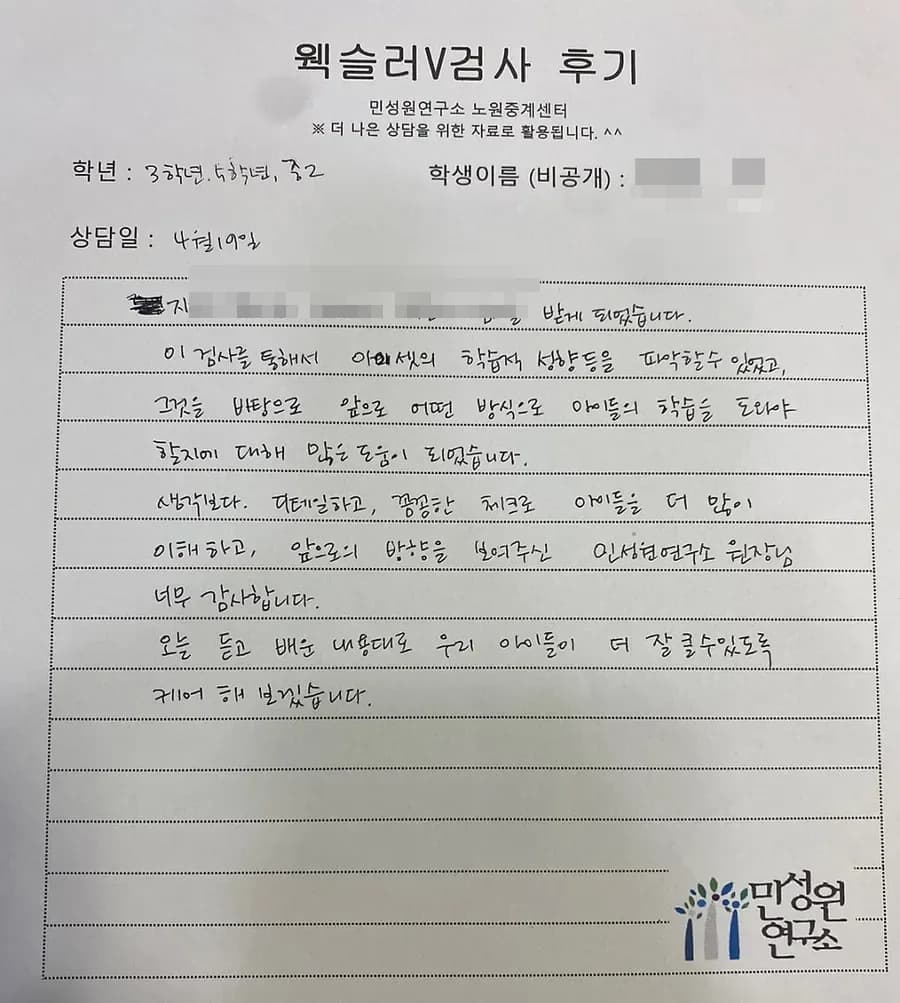 웩슬러V검사 후기
민성원연구소 노원중계센터
※ 더 나은 상담을 위한 자료로 활용됩니다. ^^
학년 : 3학년. 5학년, 중2
학생이름 (비공개) :
상담일 : 4월19일
지 받게 되었습니다.
이 검사를 통해서 아이셋의 학습적 성향등을 파악할수 있었고,
그것을 바탕으로 앞으로 어떤 방식으로 아이들의 학습을 도와야
할지에 대해 많은 도움이 되었습니다.
생각보다. 디테일하고, 꼼꼼한 체크로 아이들을 더 많이
이해하고, 앞으로의 방향을 보여주신 민성현연구소 원장님
너무 감사합니다.
오늘 듣고 배운 내용대로 우리 아이들이 더 잘 클수있도록
케어 해 보겠습니다.
민성원
연구소